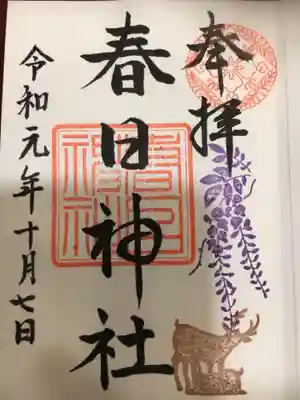 奉拝
春日神社
令和元年十月七日